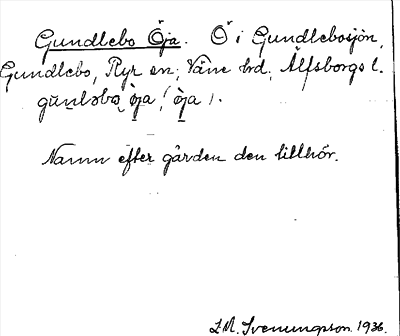 Gundlebo Öja. Ö i Gundlebosjön,
Gundlebo, Ryr sn; Väne hd. Älfsborgs l.
gu̇nləbo ö̀ja, (ö̀ja).
Namn efter gården den tillhör.
I.M. Svenungsson. 1936.